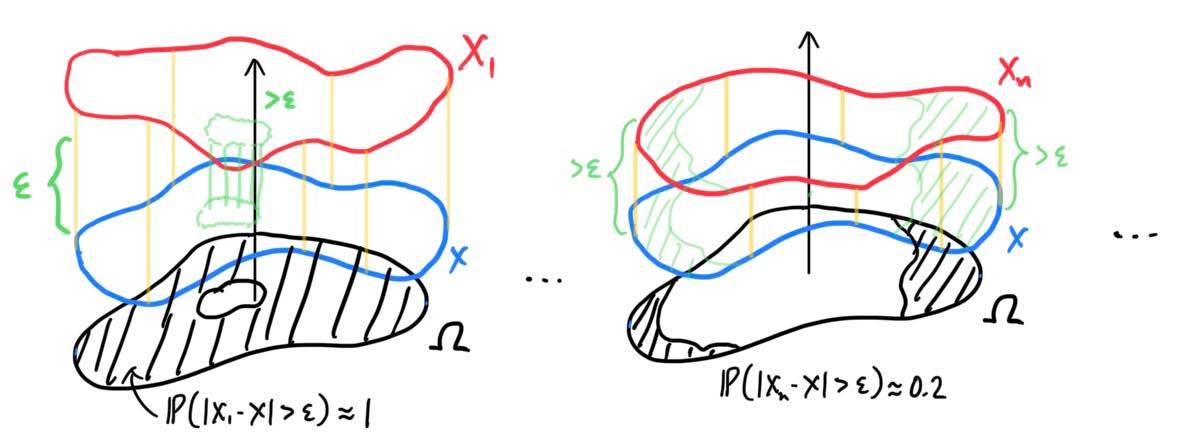 X₁
>ε
ε
X
Ω
ℙ(|X₁-X|>ε)≈1
...
Xₙ
>ε
>ε
X
Ω
ℙ(|Xₙ-X|>ε)≈0.2
...